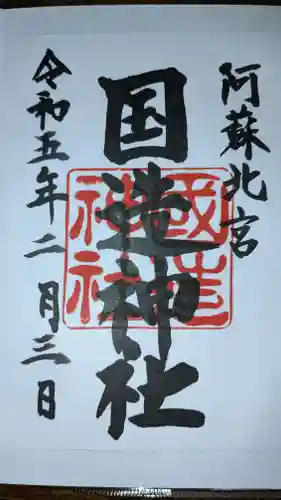 阿蘇北宮
国造神社
國造神社
令和五年二月三日